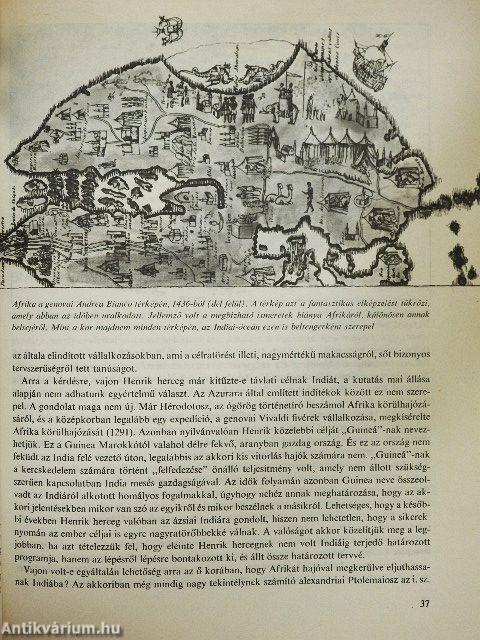 Afrika a genovai Andrea Bianco térképén, 1436-ból (dél felül). A térkép azt a fantasztikus elképzelést tükrözi,
amely abban az időben uralkodott. Jellemző volt a megbízható ismeretek hiánya Afrikáról, különösen annak
belsejéről. Mint a kor majdnem minden térképén, az Indiai-óceán ezen is beltengerként szerepel
az általa elindított vállalkozásokban, ami a célratörést illeti, nagymértékű makacsságról, sőt bizonyos
tervszerűségről tett tanúságot.
Arra a kérdésre, vajon Henrik herceg már kitűzte-e távlati célnak Indiát, a kutatás mai állása
alapján nem adhatunk egyértelmű választ. Az Azurara által említett indítékok között ez nem szere-
pel. A gondolat maga nem új. Már Hérodotosz, az ógörög történetíró beszámol Afrika körülhajózá-
sáról, és a középkorban legalább egy expedíció, a genovai Vivaldi fivérek vállalkozása, megkísérelte
Afrika körülhajózását (1291). Azonban nyilvánvalóan Henrik közelebbi célját „Guineá"-nak nevez-
hetjük. Ez a Guinea Marokkótól valahol délre fekvő, aranyban gazdag ország. És ez az ország nem
feküdt az India felé vezető úton, legalábbis az akkori kis vitorlás hajók számára nem. „Guineá"-nak
a kereskedelem számára történt „felfedezése" önálló teljesítmény volt, amely nem állott szükség-
szerűen kapcsolatban India mesés gazdagságával. Az idők folyamán azonban Guinea neve összeol-
vadt az Indiáról alkotott homályos fogalmakkal, úgyhogy nehéz annak meghatározása, hogy az ak-
kori jelentésekben mikor van szó az egyikről és mikor beszélnek a másikról. Lehetséges, hogy a késő-
bbi években Henrik herceg valóban az ázsiai Indiára gondolt, hiszen nem lehetetlen, hogy a sikerek
nyomán az ember céljai is egyre nagyratörőbbekké válnak. A valóságot akkor közelítjük meg a leg-
jobban, ha azt tételezzük fel, hogy eleinte Henrik hercegnek nem volt Indiáig terjedő határozott
programja, hanem az lépésről lépésre bontakozott ki, és állt össze határozott tervvé.
Vajon volt-e egyáltalán lehetőség arra az ő korában, hogy Afrikát hajóval megkerülve eljuthassa-
nak Indiába? Az akkoriban még mindig nagy tekintélynek számító alexandriai Ptolemaiosz az i. sz.
37
Antikvárium.hu